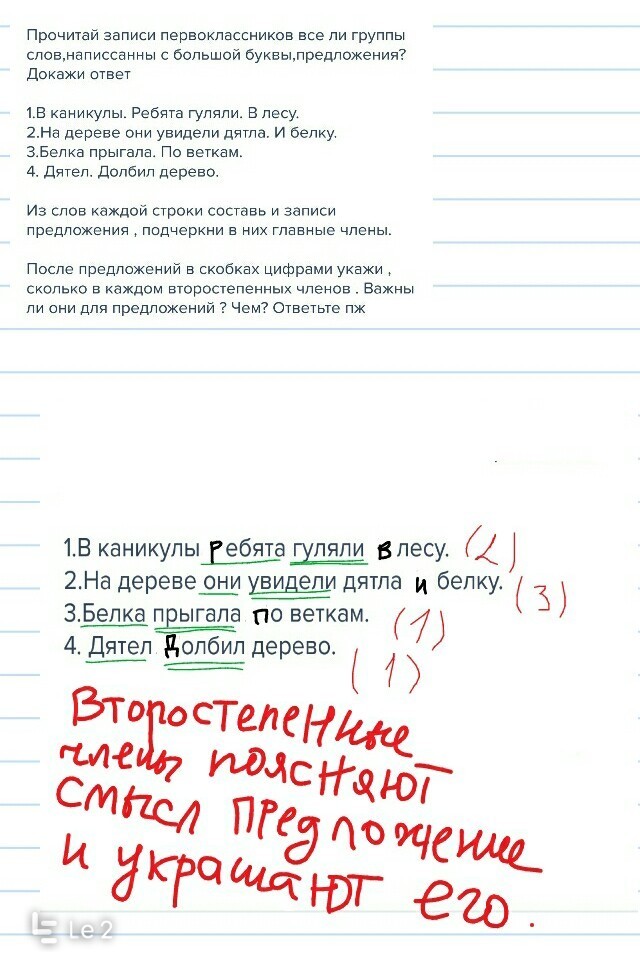 Прочитай записи первоклассников все ли группы
слов,написсанны с большой буквы,предложения?
Докажи ответ
1.В каникулы. Ребята гуляли. В лесу.
2.На дереве они увидели дятла. И белку.
3.Белка прыгала. По веткам.
4. Дятел. Долбил дерево.
Из слов каждой строки составь и записи
предложения , подчеркни в них главные члены.
После предложений в скобках цифрами укажи ,
сколько в каждом второстепенных членов . Важны
ли они для предложений ? Чем? Ответьте пж
1.В каникулы ребята гуляли в лесу. (2)
2.На дереве они увидели дятла и белку. (3)
3.Белка прыгала по веткам. (1)
4. Дятел долбил дерево. (1)
Второстепенные
члены поясняют
смысл предложение
и украшают его.
Le 2